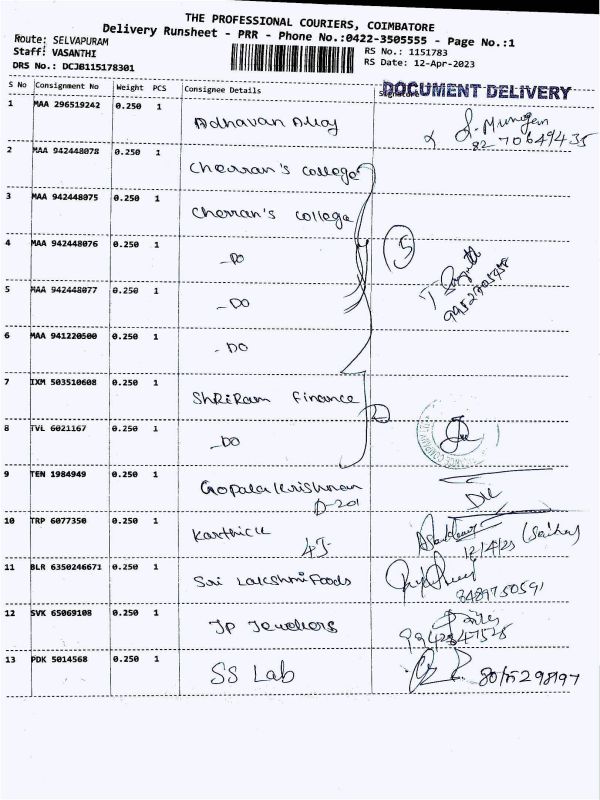 THE PROFESSIONAL COURIERS, COIMBATORE
Delivery Runsheet - PRR - Phone No.:0422-3505555 - Page No.:1
Route: SELVAPURAM
Staff: VASANTHI
RS No.: 1151783
DRS No.: DCJB115178301
RS Date: 12-Apr-2023
S No Consignment No Weight PCS Consignee Details Signature
DOCUMENT DELIVERY
1 MAA 296519242 0.250 1 Adhavan Alloy
S. Murugan
82 70649435
2 MAA 942448078 0.250 1 Cherran's College
3 MAA 942448075 0.250 1 Cherran's College
4 MAA 942448076 0.250 1 -DO
5
5 MAA 942448077 0.250 1 -DO
6 MAA 941220500 0.250 1 -DO
7 IXM 503510608 0.250 1 ShRiRam Finance
2
8 TVL 6021167 0.250 1 -DO
9 TEN 1984949 0.250 1 Gopalakrishnan
D-201
10 TRP 6077350 0.250 1 Karthick
12/4/23
11 BLR 6350246671 0.250 1 Sri Lakshmi Foods
8489750591
12 SVK 65069108 0.250 1 JP Jewellers
13 PDK 5014568 0.250 1 SS Lab